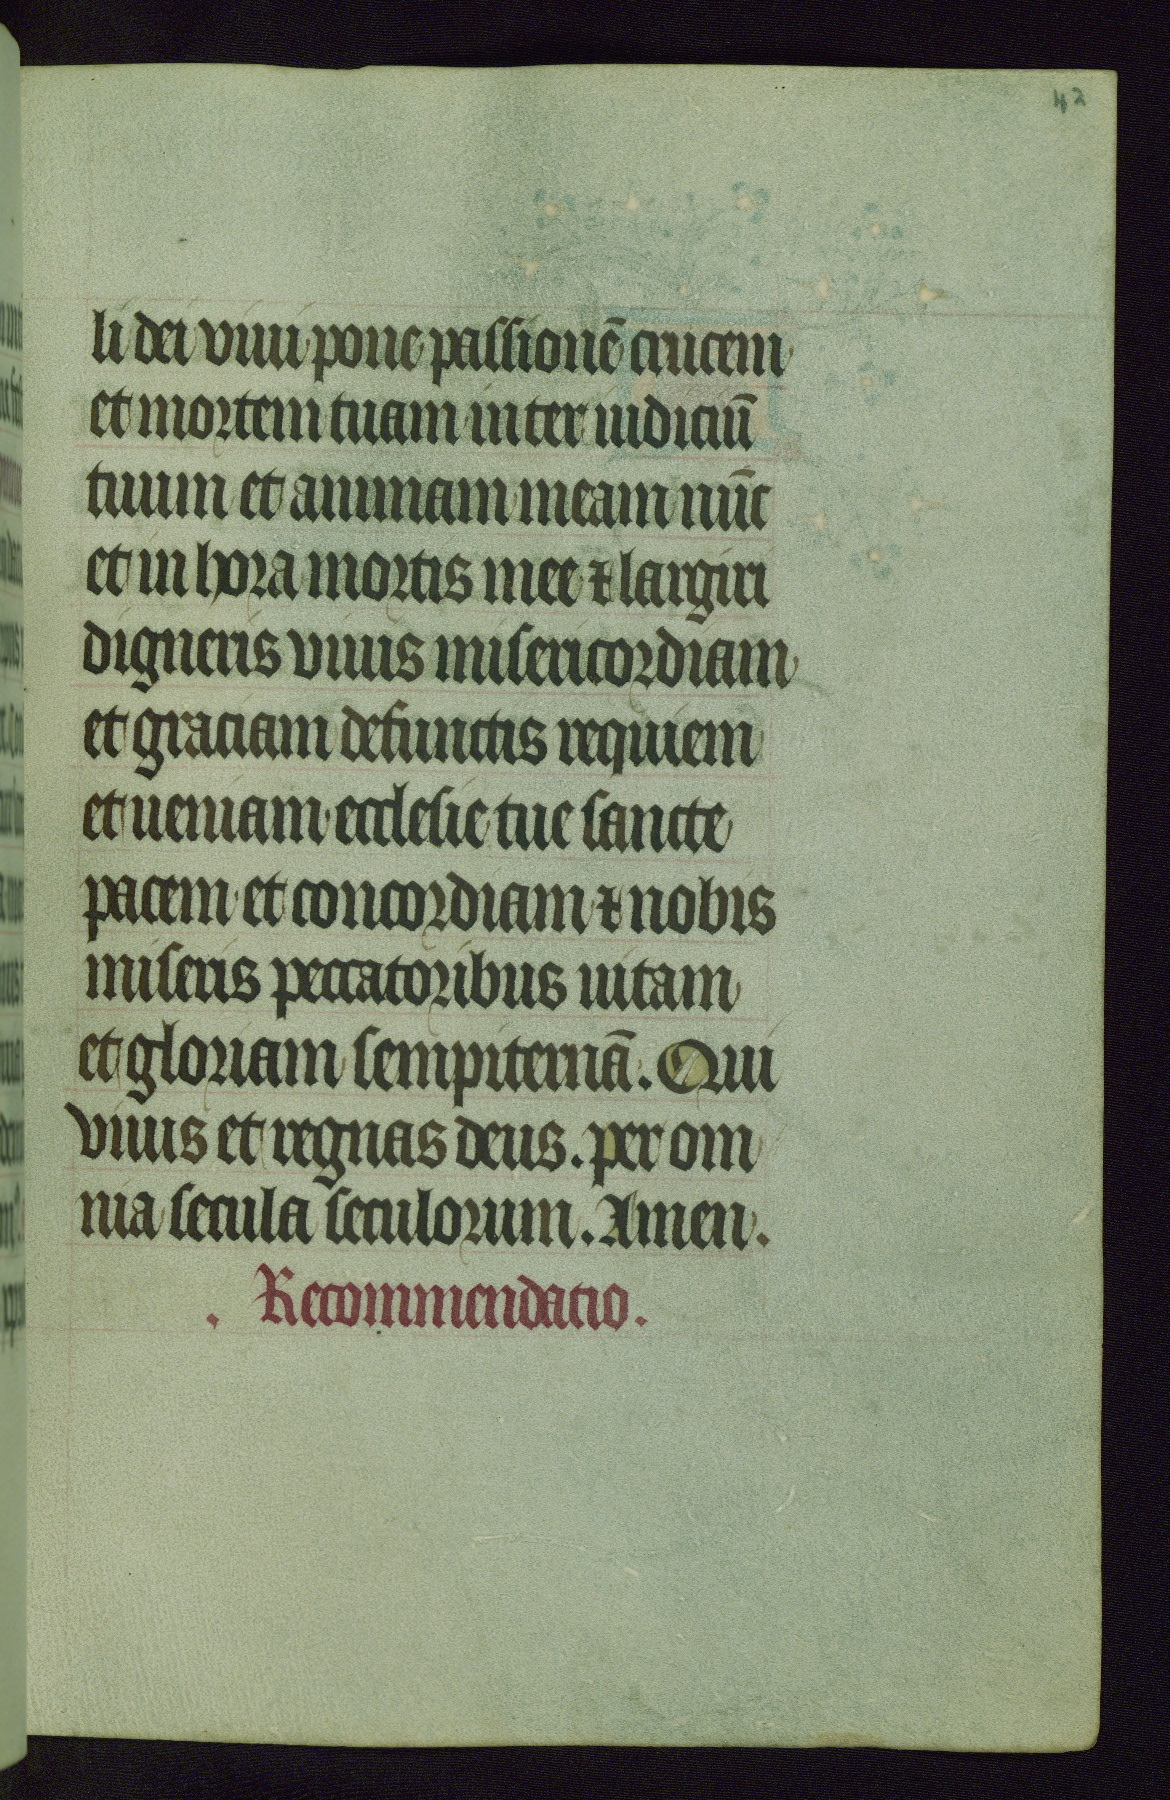 42
li dei viui pone passionē crucem
et mortem tuam inter iudiciū
tuum et animam meam nūc
et in hora mortis mee ⁊ largiri
digneris viuis misericordiam
et graciam defunctis requiem
et ueniam ecclesie tue sancte
pacem et concordiam ⁊ nobis
miseris peccatoribus uitam
et gloriam sempiternā. Qui
viuis et regnas deus. per om
nia secula seculorum. Amen.
. Recommendatio.